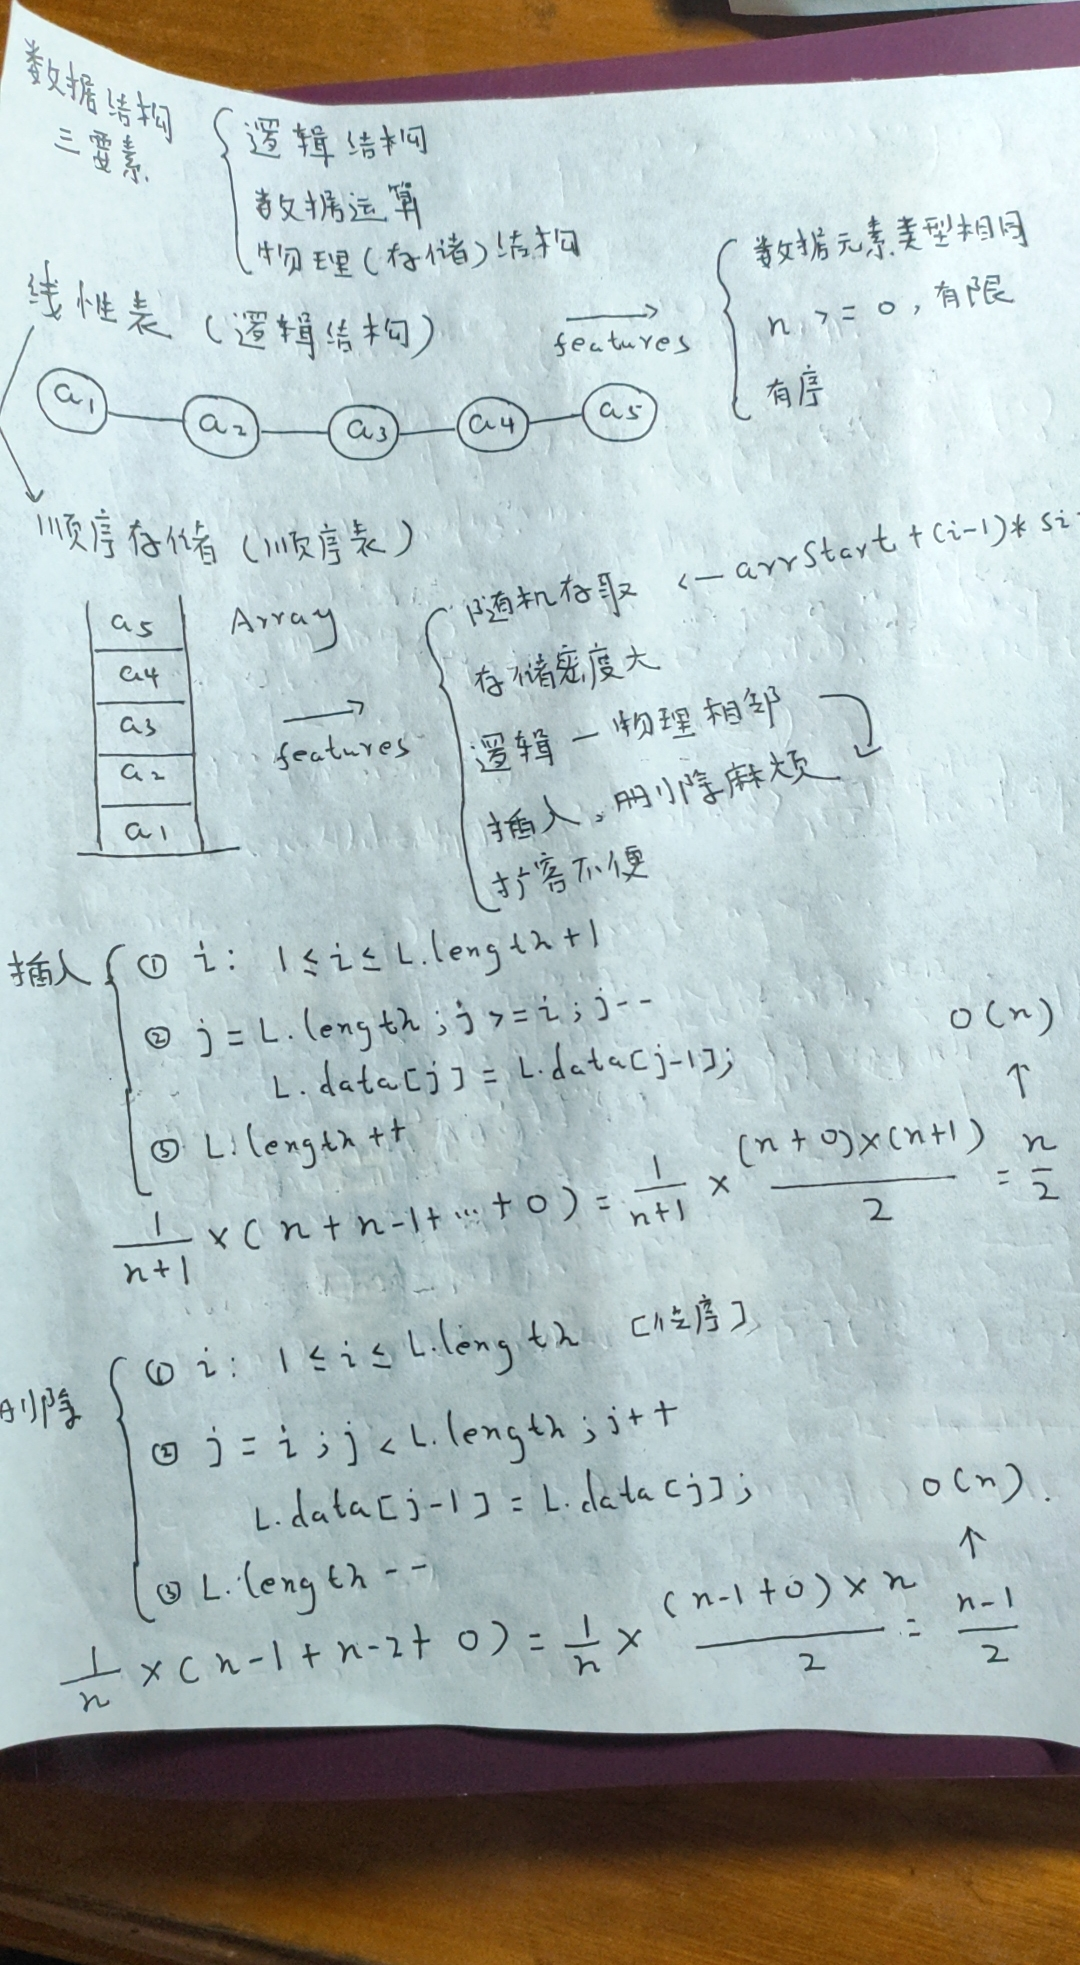 数据结构
三要素
逻辑结构
数据运算
物理(存储)结构
线性表(逻辑结构)
features
数据元素类型相同
n >= 0, 有限
有序
a1 a2 a3 a4 a5
顺序存储(顺序表)
a5
a4
a3
a2
a1
Array
features
随机存取 <— arrStart + (i-1)* si
存储密度大
逻辑—物理相邻
插入,删除麻烦
扩容不便
插入
① i: 1≤i≤L.length+1
② j=L.length;j>=i;j--
L.data[j]=L.data[j-1];
③ L.length++
O(n)
↑
1/(n+1) ×(n+n-1+…+0)= 1/(n+1) × (n+0)×(n+1)/2 = n/2
删除
① i: 1≤i≤L.length [位序]
② j=i;j<L.length;j++
L.data[j-1]=L.data[j];
③ L.length--
O(n).
↑
1/n ×(n-1+n-2+0)= 1/n × (n-1+0)×n/2 = (n-1)/2